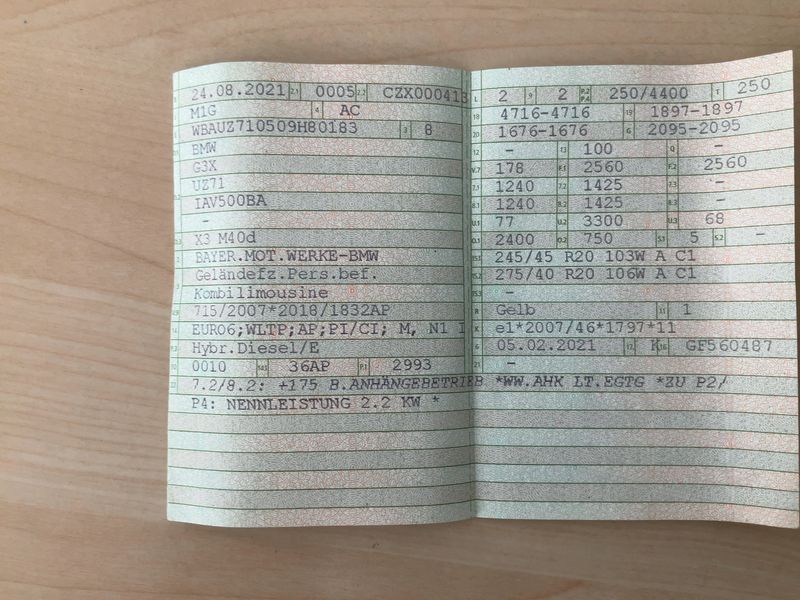 24.08.2021 2.1 0005 2.2 CZX000413
M1G 4 AC
WBAUZ710509H80183 3 8
BMW
G3X
UZ71
IAV500BA
-
X3 M40d
BAYER.MOT.WERKE-BMW
Geländefz.Pers.bef.
Kombilimousine
715/2007*2018/1832AP
EURO6;WLTP;AP;PI/CI; M, N1 I
Hybr.Diesel/E
0010 36AP P.1 2993
7.2/8.2: +175 B.ANHÄNGEBETRIEB *WW.AHK LT.EGTG *ZU P2/
P4: NENNLEISTUNG 2.2 KW *
L 2 9 2 P.2 P.4 250/4400 T 250
18 4716-4716 19 1897-1897
20 1676-1676 G 2095-2095
12 - 13 100 Q -
V.7 178 F.1 2560 F.2 2560
7.1 1240 7.2 1425 7.3 -
8.1 1240 8.2 1425 8.3 -
U.1 77 U.2 3300 U.3 68
O.1 2400 O.2 750 S.1 5 S.2 -
15.1 245/45 R20 103W A C1
15.2 275/40 R20 106W A C1
15.3 -
R Gelb 11 1
K e1*2007/46*1797*11
6 05.02.2021 17 K 16 GF560487
21 -